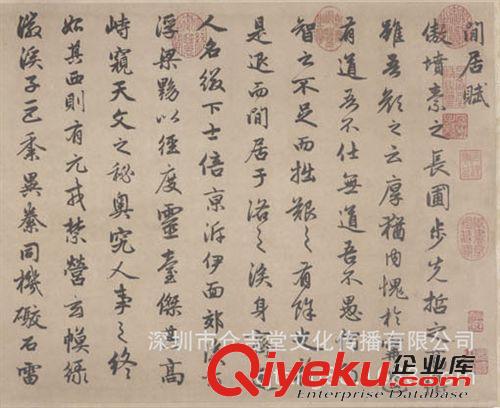 閒居賦
傲墳素之長圃步先哲之
雖吾顏之云厚猶內愧於
有道吾不仕無道吾不愚
智之不足而拙艱之有餘也
是退而閒居于洛之涘身
人名綴下士倍京泝伊面郊
浮梁黝以徑度靈臺傑其高
峙窺天文之秘奧究人事之終
始其西則有元戎禁營玄幙綠
徽溪子巨黍異絭同機礮石雷
深圳市仓吉堂文化传播有限公司
Qiyeku.com 企业库
ENTERPRISE DATABASE